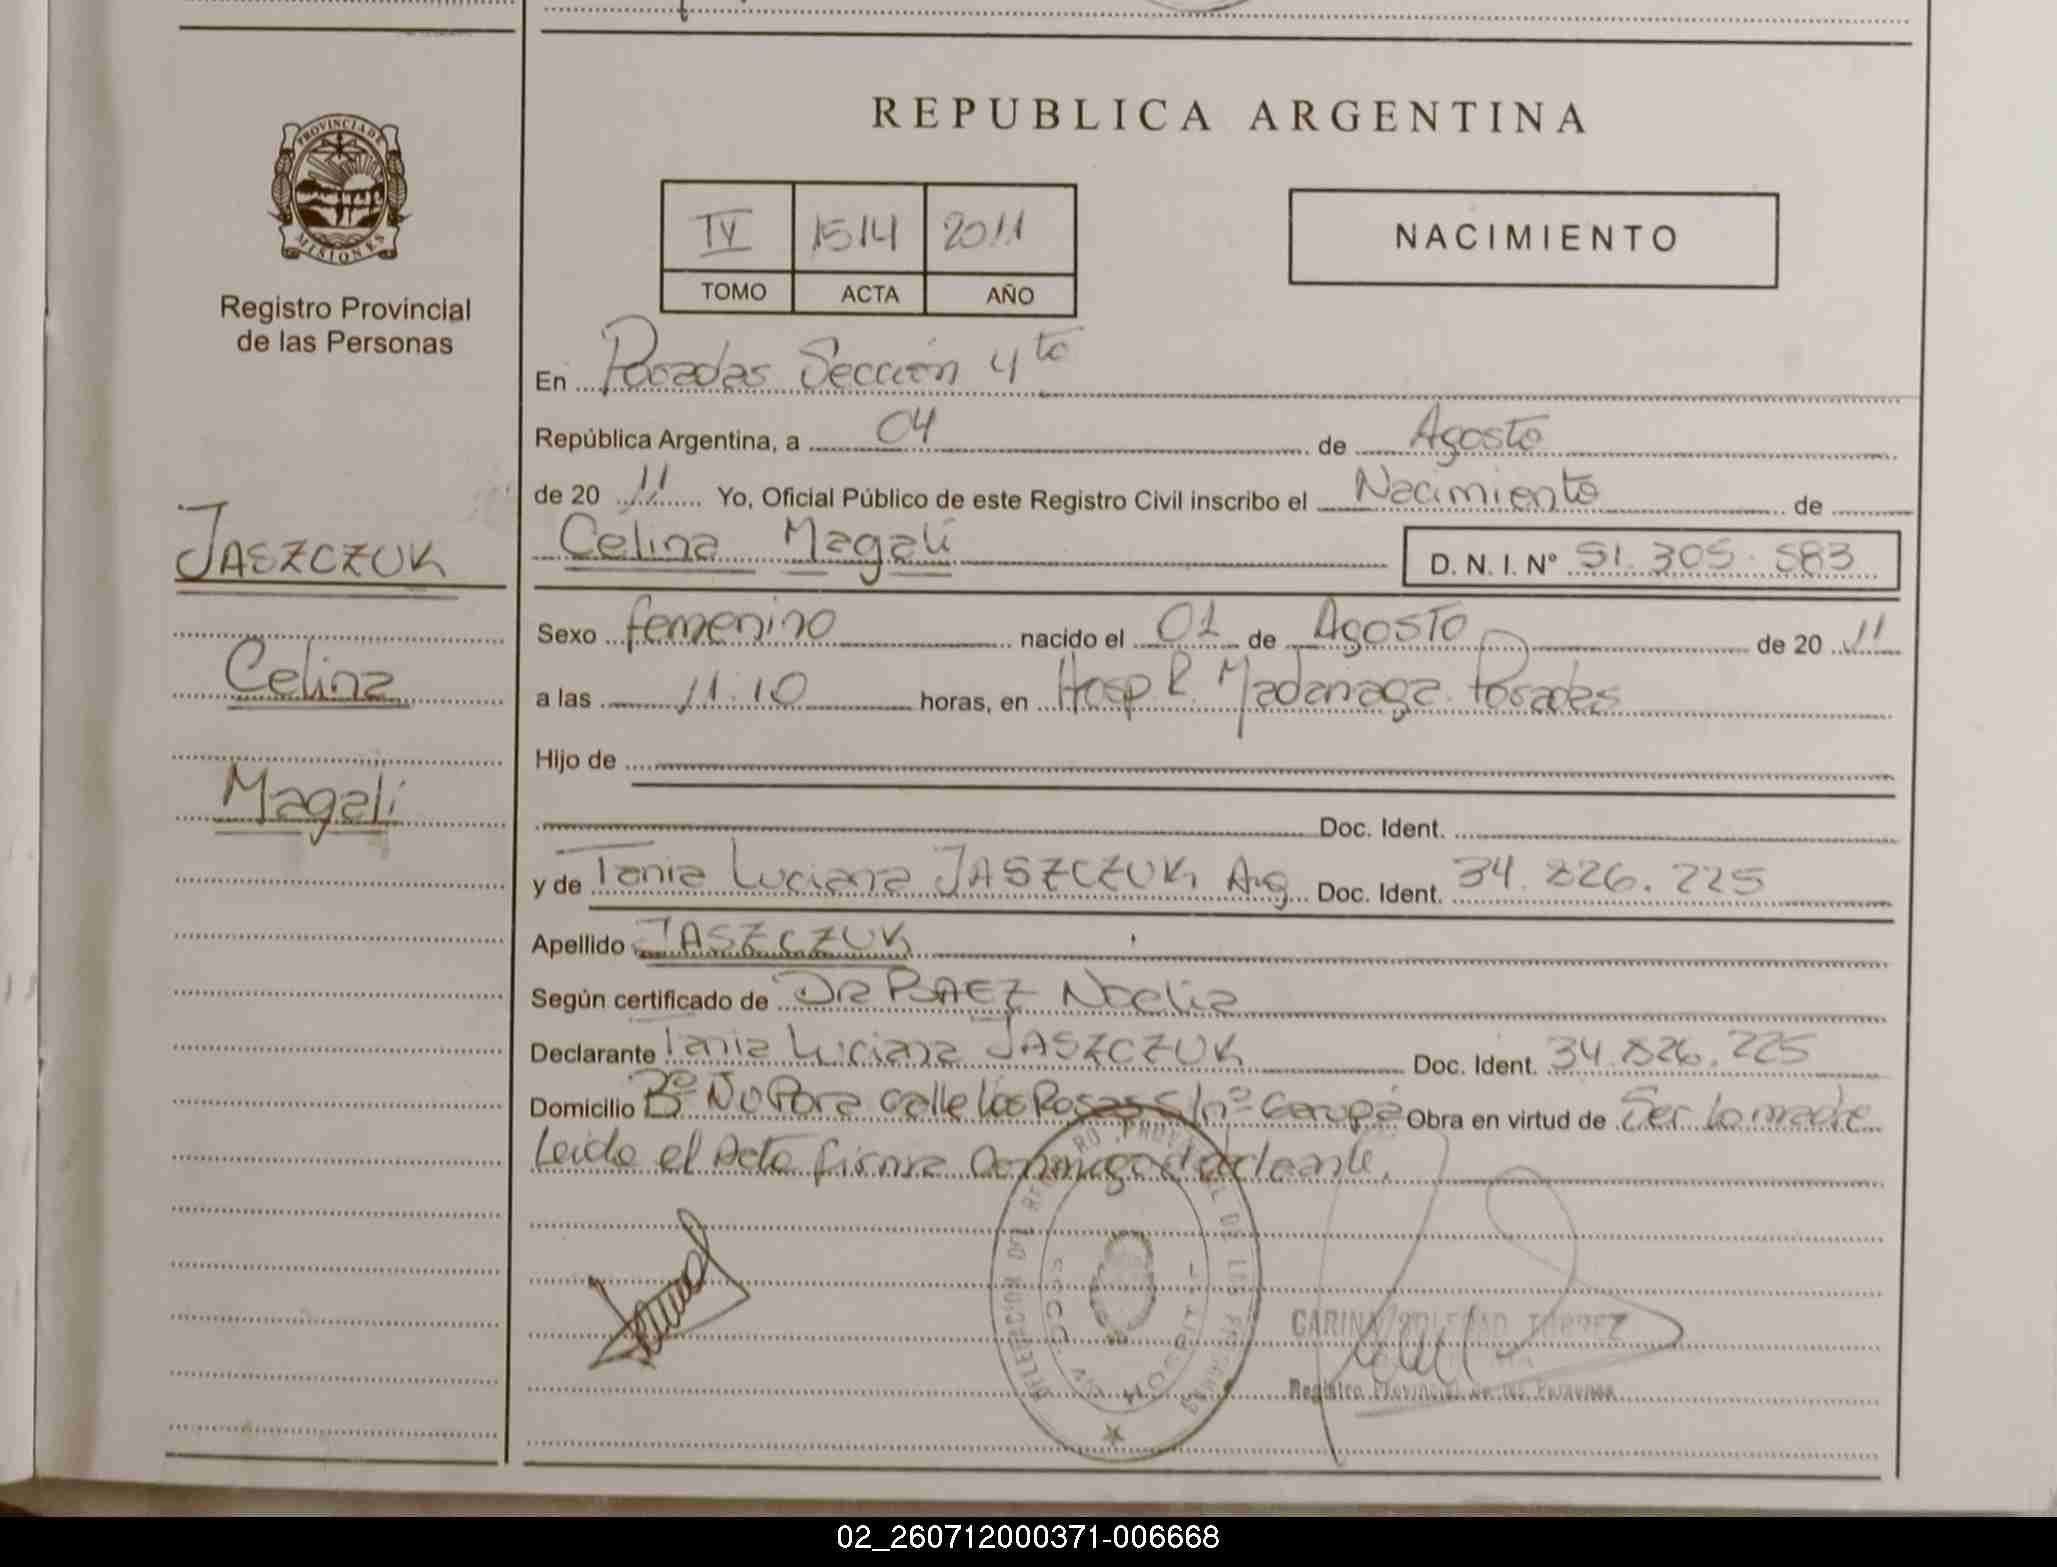 REPUBLICA ARGENTINA
PROVINCIA DE
MISIONES
Registro Provincial
de las Personas
IV 1514 2011
TOMO ACTA AÑO
NACIMIENTO
En Posadas Sección 4to
República Argentina, a 04 de Agosto
de 20 11 Yo, Oficial Público de este Registro Civil inscribo el Nacimiento de
JASZCZUK
Celina Magali D. N. I. Nº 51.305.583
Sexo femenino nacido el 01 de Agosto de 20 11
Celina
a las 11.10 horas, en Hosp R. Madariaga. Posadas
Hijo de
Magali
Doc. Ident.
y de Tania Luciana JASZCZUK Arg. Doc. Ident. 34.826.225
Apellido JASZCZUK
Según certificado de Dra BAEZ Noelia
Declarante Tania Luciana JASZCZUK Doc. Ident. 34.826.225
Domicilio Bº Ñu Pora calle las Rosas S/nº Garupá Obra en virtud de Ser la madre
Leida el Acta firma conmigo declarante.
DELEGACION DEL REGISTRO PROVINCIAL DE LAS PERSONAS
CARINA SOLEDAD TORREZ
Registro Provincial de las Personas
02_260712000371-006668